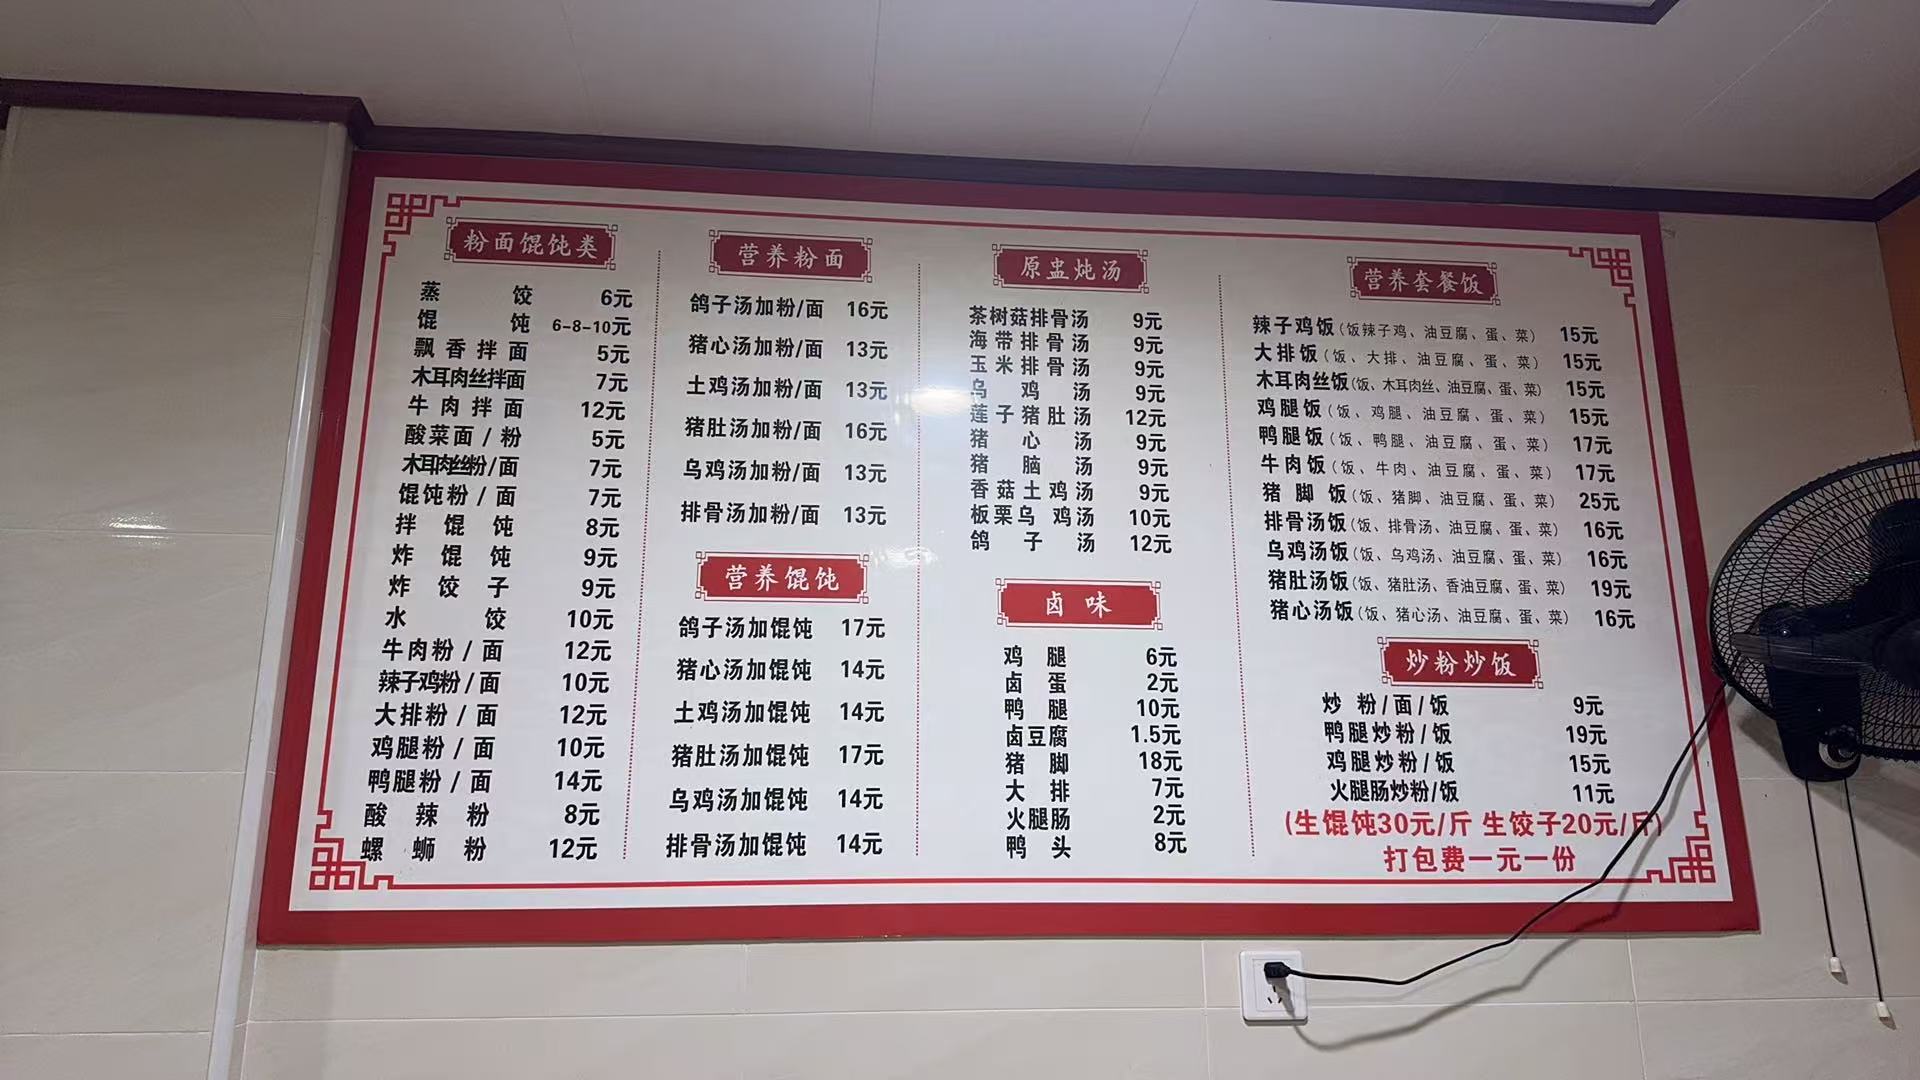 粉面馄饨类
蒸饺 6元
馄饨 6-8-10元
飘香拌面 5元
木耳肉丝拌面 7元
牛肉拌面 12元
酸菜面/粉 5元
木耳肉丝粉/面 7元
馄饨粉/面 7元
拌馄饨 8元
炸馄饨 9元
炸饺子 9元
水饺 10元
牛肉粉/面 12元
辣子鸡粉/面 10元
大排粉/面 12元
鸡腿粉/面 10元
鸭腿粉/面 14元
酸辣粉 8元
螺蛳粉 12元
营养粉面
鸽子汤加粉/面 16元
猪心汤加粉/面 13元
土鸡汤加粉/面 13元
猪肚汤加粉/面 16元
乌鸡汤加粉/面 13元
排骨汤加粉/面 13元
营养馄饨
鸽子汤加馄饨 17元
猪心汤加馄饨 14元
土鸡汤加馄饨 14元
猪肚汤加馄饨 17元
乌鸡汤加馄饨 14元
排骨汤加馄饨 14元
原盅炖汤
茶树菇排骨汤 9元
海带排骨汤 9元
玉米排骨汤 9元
乌鸡汤 9元
莲子猪肚汤 12元
猪心汤 9元
猪脑汤 9元
香菇土鸡汤 9元
板栗乌鸡汤 10元
鸽子汤 12元
卤味
鸡腿 6元
卤蛋 2元
鸭腿 10元
卤豆腐 1.5元
猪脚 18元
大排 7元
火腿肠 2元
鸭头 8元
营养套餐饭
辣子鸡饭(饭辣子鸡、油豆腐、蛋、菜) 15元
大排饭(饭、大排、油豆腐、蛋、菜) 15元
木耳肉丝饭(饭、木耳肉丝、油豆腐、蛋、菜) 15元
鸡腿饭(饭、鸡腿、油豆腐、蛋、菜) 15元
鸭腿饭(饭、鸭腿、油豆腐、蛋、菜) 17元
牛肉饭(饭、牛肉、油豆腐、蛋、菜) 17元
猪脚饭(饭、猪脚、油豆腐、蛋、菜) 25元
排骨汤饭(饭、排骨汤、油豆腐、蛋、菜) 16元
乌鸡汤饭(饭、乌鸡汤、油豆腐、蛋、菜) 16元
猪肚汤饭(饭、猪肚汤、香油豆腐、蛋、菜) 19元
猪心汤饭(饭、猪心汤、油豆腐、蛋、菜) 16元
炒粉炒饭
炒粉/面/饭 9元
鸭腿炒粉/饭 19元
鸡腿炒粉/饭 15元
火腿肠炒粉/饭 11元
(生馄饨30元/斤 生饺子20元/斤)
打包费一元一份